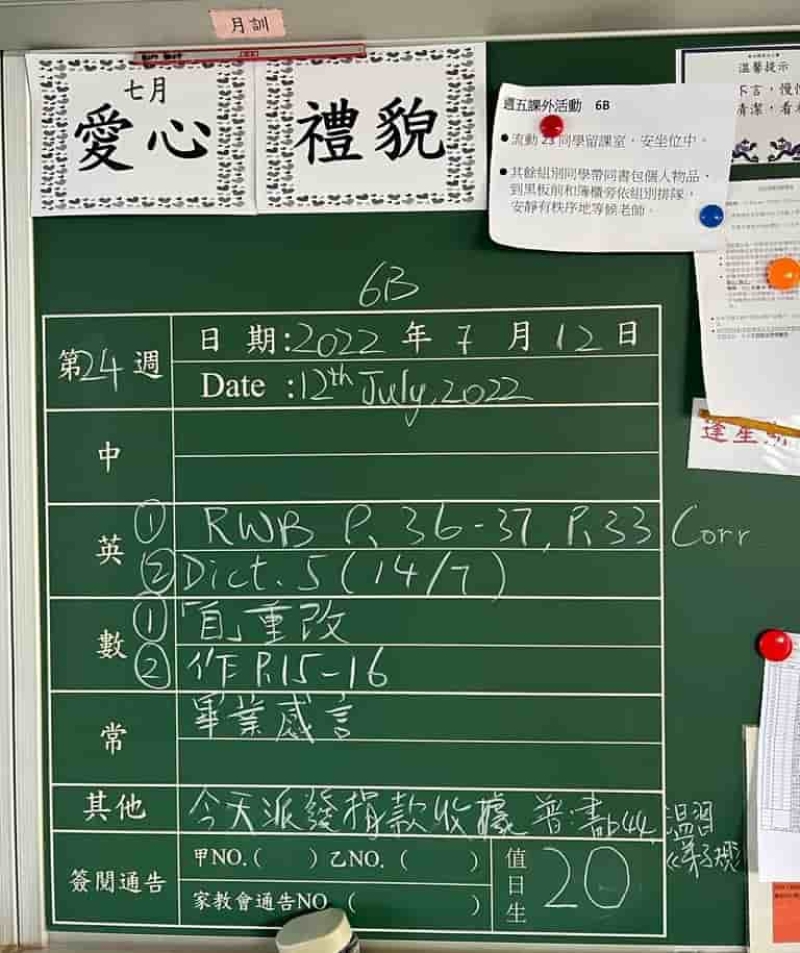 月訓
七月
愛心
禮貌
週五課外活動 6B
流動 23 同學留課室,安坐位中。
其餘組別同學帶同書包個人物品,
到黑板前和簿櫃旁依組別排隊,
安靜有秩序地等候老師。
溫馨提示
逢星
6B
第24週
日期:2022年7月12日
Date :12th July, 2022
中
英
① RWB P. 36-37, P.33 Corr
② Dict. 5 (14/7)
數
①「自」重改
② 作P.15-16
常
畢業感言
其他
今天派發捐款收據 普:書b44, 溫習
《弟子規》
簽閱通告
甲NO.( ) 乙NO. ( )
家教會通告NO. ( )
值日生
20